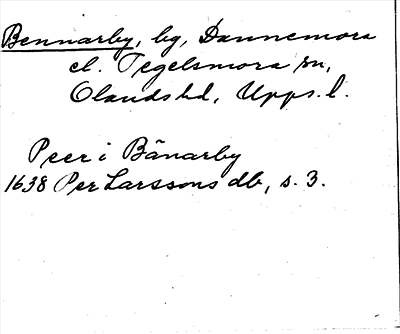 Bennarby, by, Dannemora
el. Tegelsmora sn,
Olands hd, Upps. l.
Peer i Bänarby
1638 Per Larssons db, s. 3.